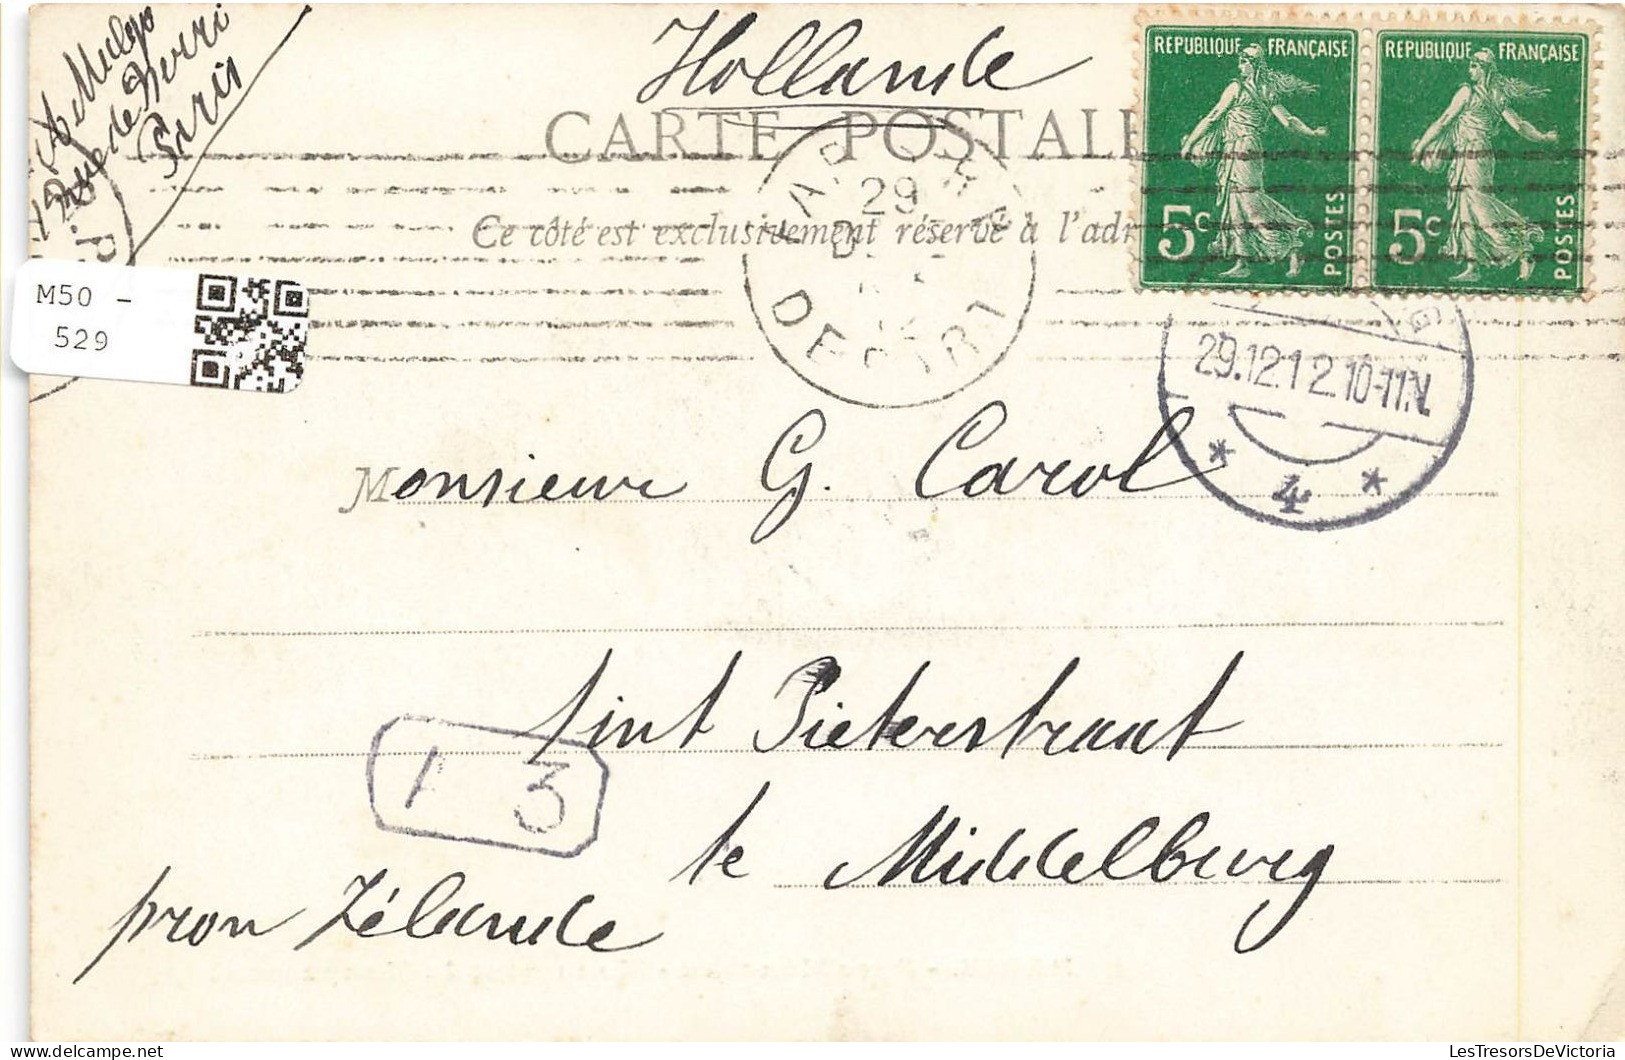 Hollande
Paris
RÉPUBLIQUE FRANÇAISE
5c
POSTES
RÉPUBLIQUE FRANÇAISE
5c
POSTES
CARTE POSTALE
Ce côté est exclusivement réservé à l'adr
29
DEPART
29.12.12.10-11.V.
* 4 *
M50 -
529
Monsieur G. Carol
Sint Pieterstraat
A 3
te Middelburg
prov Zélande
LesTresorsDeVictoria